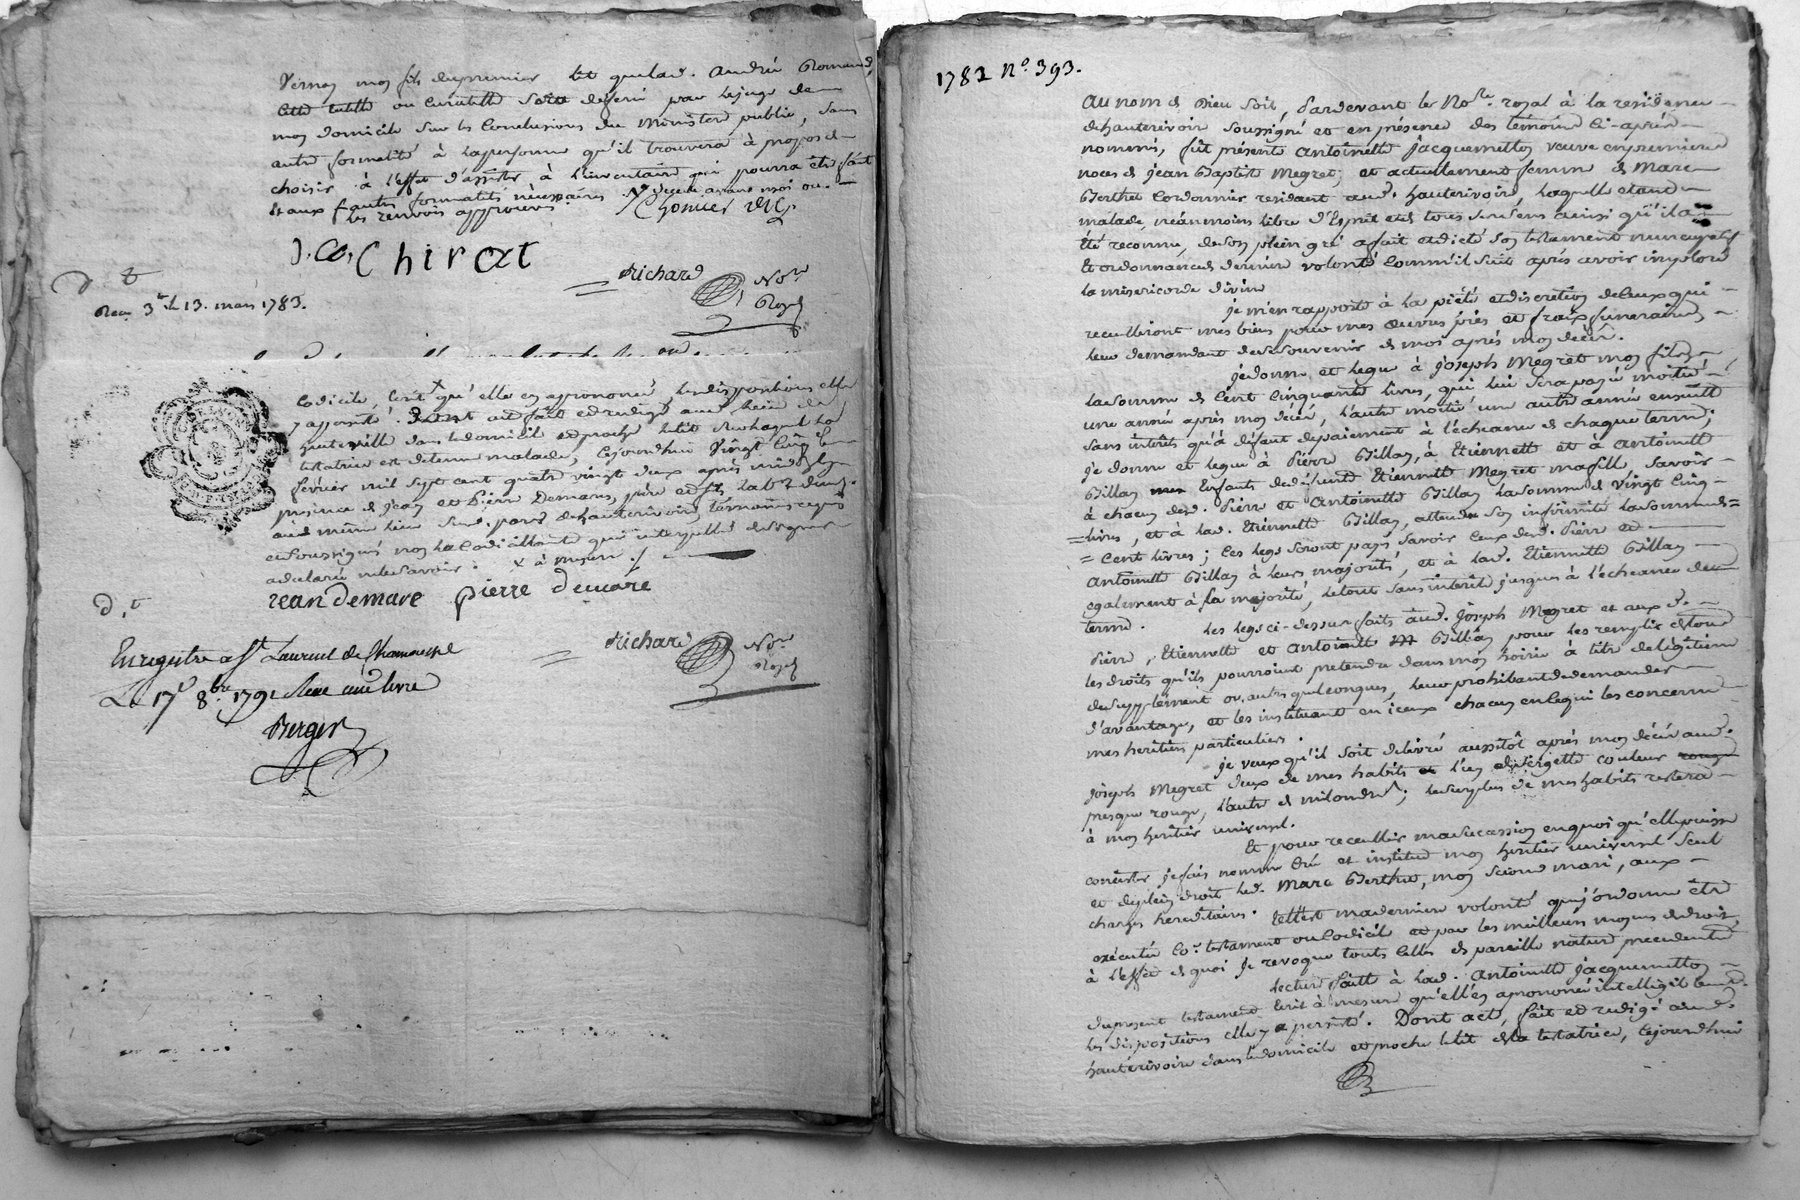 Vernay mon fils du premier lit que lad. Andrée Romand,
cette tutelle ou curatelle sera deferé par le juge de
mon domicile sur les Conclusions du Ministere public, sans
autre formalité à la personne qu'il trouvera à propos de
choisir à l'effet d'assister à l'inventaire qui pourra être fait
et aux autres formalités nécessaires
les renvois approuvés
J. C. Chirat
Richard Nore
Royal
d t
Reçu 3# le 13. mars 1783.
codicile, Ecrit qu'elle en a prononcé les dispositions elle
y a persisté. Dont acte fait et redigé aud. lieu de
hauteville dans le domicile et proche le lit duquel la
testatrice est detenue malade, cejourd'hui vingt cinq
fevrier mil sept cent quatre vingt deux après midi
presence de jean et Pierre Demare, père et fils
aud. même lieu paroisse d'hauterivoire, témoins requis
et soussignés non la Codicillante qui interpellée de signer
a declaré ne le savoir. x à mesure ./.
jean demare pierre demare
d. t
Richard Nore
Royal
Enregistré a St. Laurent de Chamousset
Le 17e 8bre 1791 Reçu une livre
Berger
1782 No. 393.
Au nom de Dieu soit, Pardevant le Nore. royal à la residence
de hauterivoire soussigné et en présence des témoins ci-après
nommés, fut présente Antoinette Jacquemetton veuve en premieres
noces de jean Baptiste Megret, et actuellement femme de Marc
Berthet Cordonnier residant aud. hauterivoire, laquelle etant
malade, néanmoins libre d'Esprit et de tous ses sens ainsi qu'il a
été reconnu, de son plein gré a fait et dicté son testament nuncupatif
et ordonnance de derniere volonté comme il suit après avoir imploré
la misericorde divine
je m'en rapporte à la pièté et discretion de ceux qui
recuilliront mes biens pour mes oeuvres pies et fraix funeraires
leur demandant de se souvenir de moi après mon décès.
je donne et legue à joseph Megret mon fils
la somme de Cent Cinquante livres, qui lui sera payée moitié
une année après mon décès, l'autre moitié une autre année ensuitte
sans interêts qu'à défaut de paiement à l'écheance de chaque terme;
je donne et legue à Pierre Billay, à Etiennette et à Antoinette
Billay Enfants de défunte Etiennette Megret ma fille, savoir
à chacun desd. Pierre et Antoinette Billay la somme de vingt cinq
livres, et à lad. Etiennette Billay, attendu son infirmité la somme de
Cent livres; ces legs seront payés savoir ceux desd. Pierre et
Antoinette Billay à leurs majorités, et à lad. Etiennette Billay
egalement à sa majorité, le tout sans interêts jusques à l'écheance de
terme.
Les legs ci-dessus faits aud. Joseph Megret et auxd.
Pierre, Etiennette et Antoinette Billay pour les remplir de tous
les droits qu'ils pourroient pretendre dans mon hoirie à titre de legitime
de supplement ou autres quelconques, leur prohibant de demander
d'avantage, et les instituant en iceux chacun en ce qui les concerne
mes heritiers particuliers.
je veux qu'il soit delivré aussitôt après mon décès aud.
Joseph Megret deux de mes habits l'un de sergette couleur rouge
presque rouge, l'autre de milondre; le surplus de mes habits restera
à mon heritier universel.
Et pour recuillir ma succession en quoi qu'elle puisse
consister je fais nomme crée et institue mon heritier universel seul
et de plein droit led. Marc Berthet, mon second mari, aux
charges hereditaires. Telle est ma derniere volonté que j'ordonne être
exécutée co. testament ou codicile et par les meilleurs moyens de droit
à l'effet de quoi je revoque toutes celles de pareille nature precedente
lecture faitte à lad. Antoinette Jacquemetton
du present testament Ecrit à mesure qu'elle en a prononcé intelligiblement
les dispositions elle y a persisté. Dont acte, fait et redigé aud.
hauterivoire dans le domicile et proche le lit de la testatrice, cejourd'hui